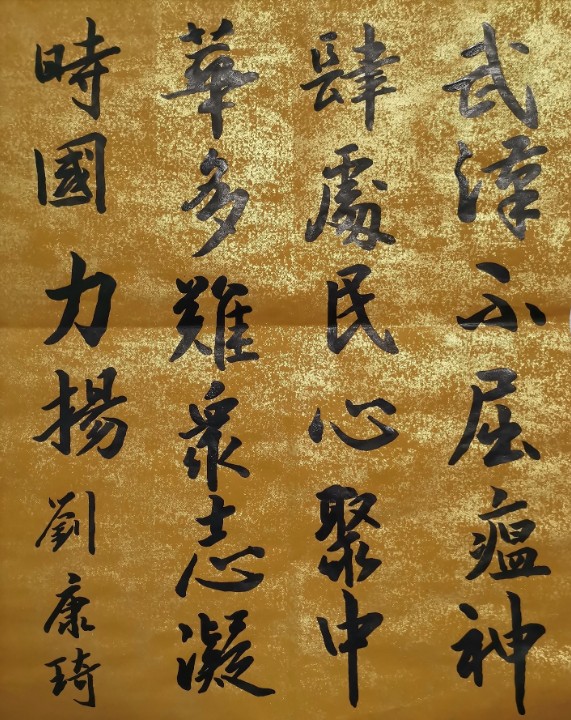 武漢不屈瘟神
肆處民心聚中
華多難眾志凝
時國力揚劉康琦